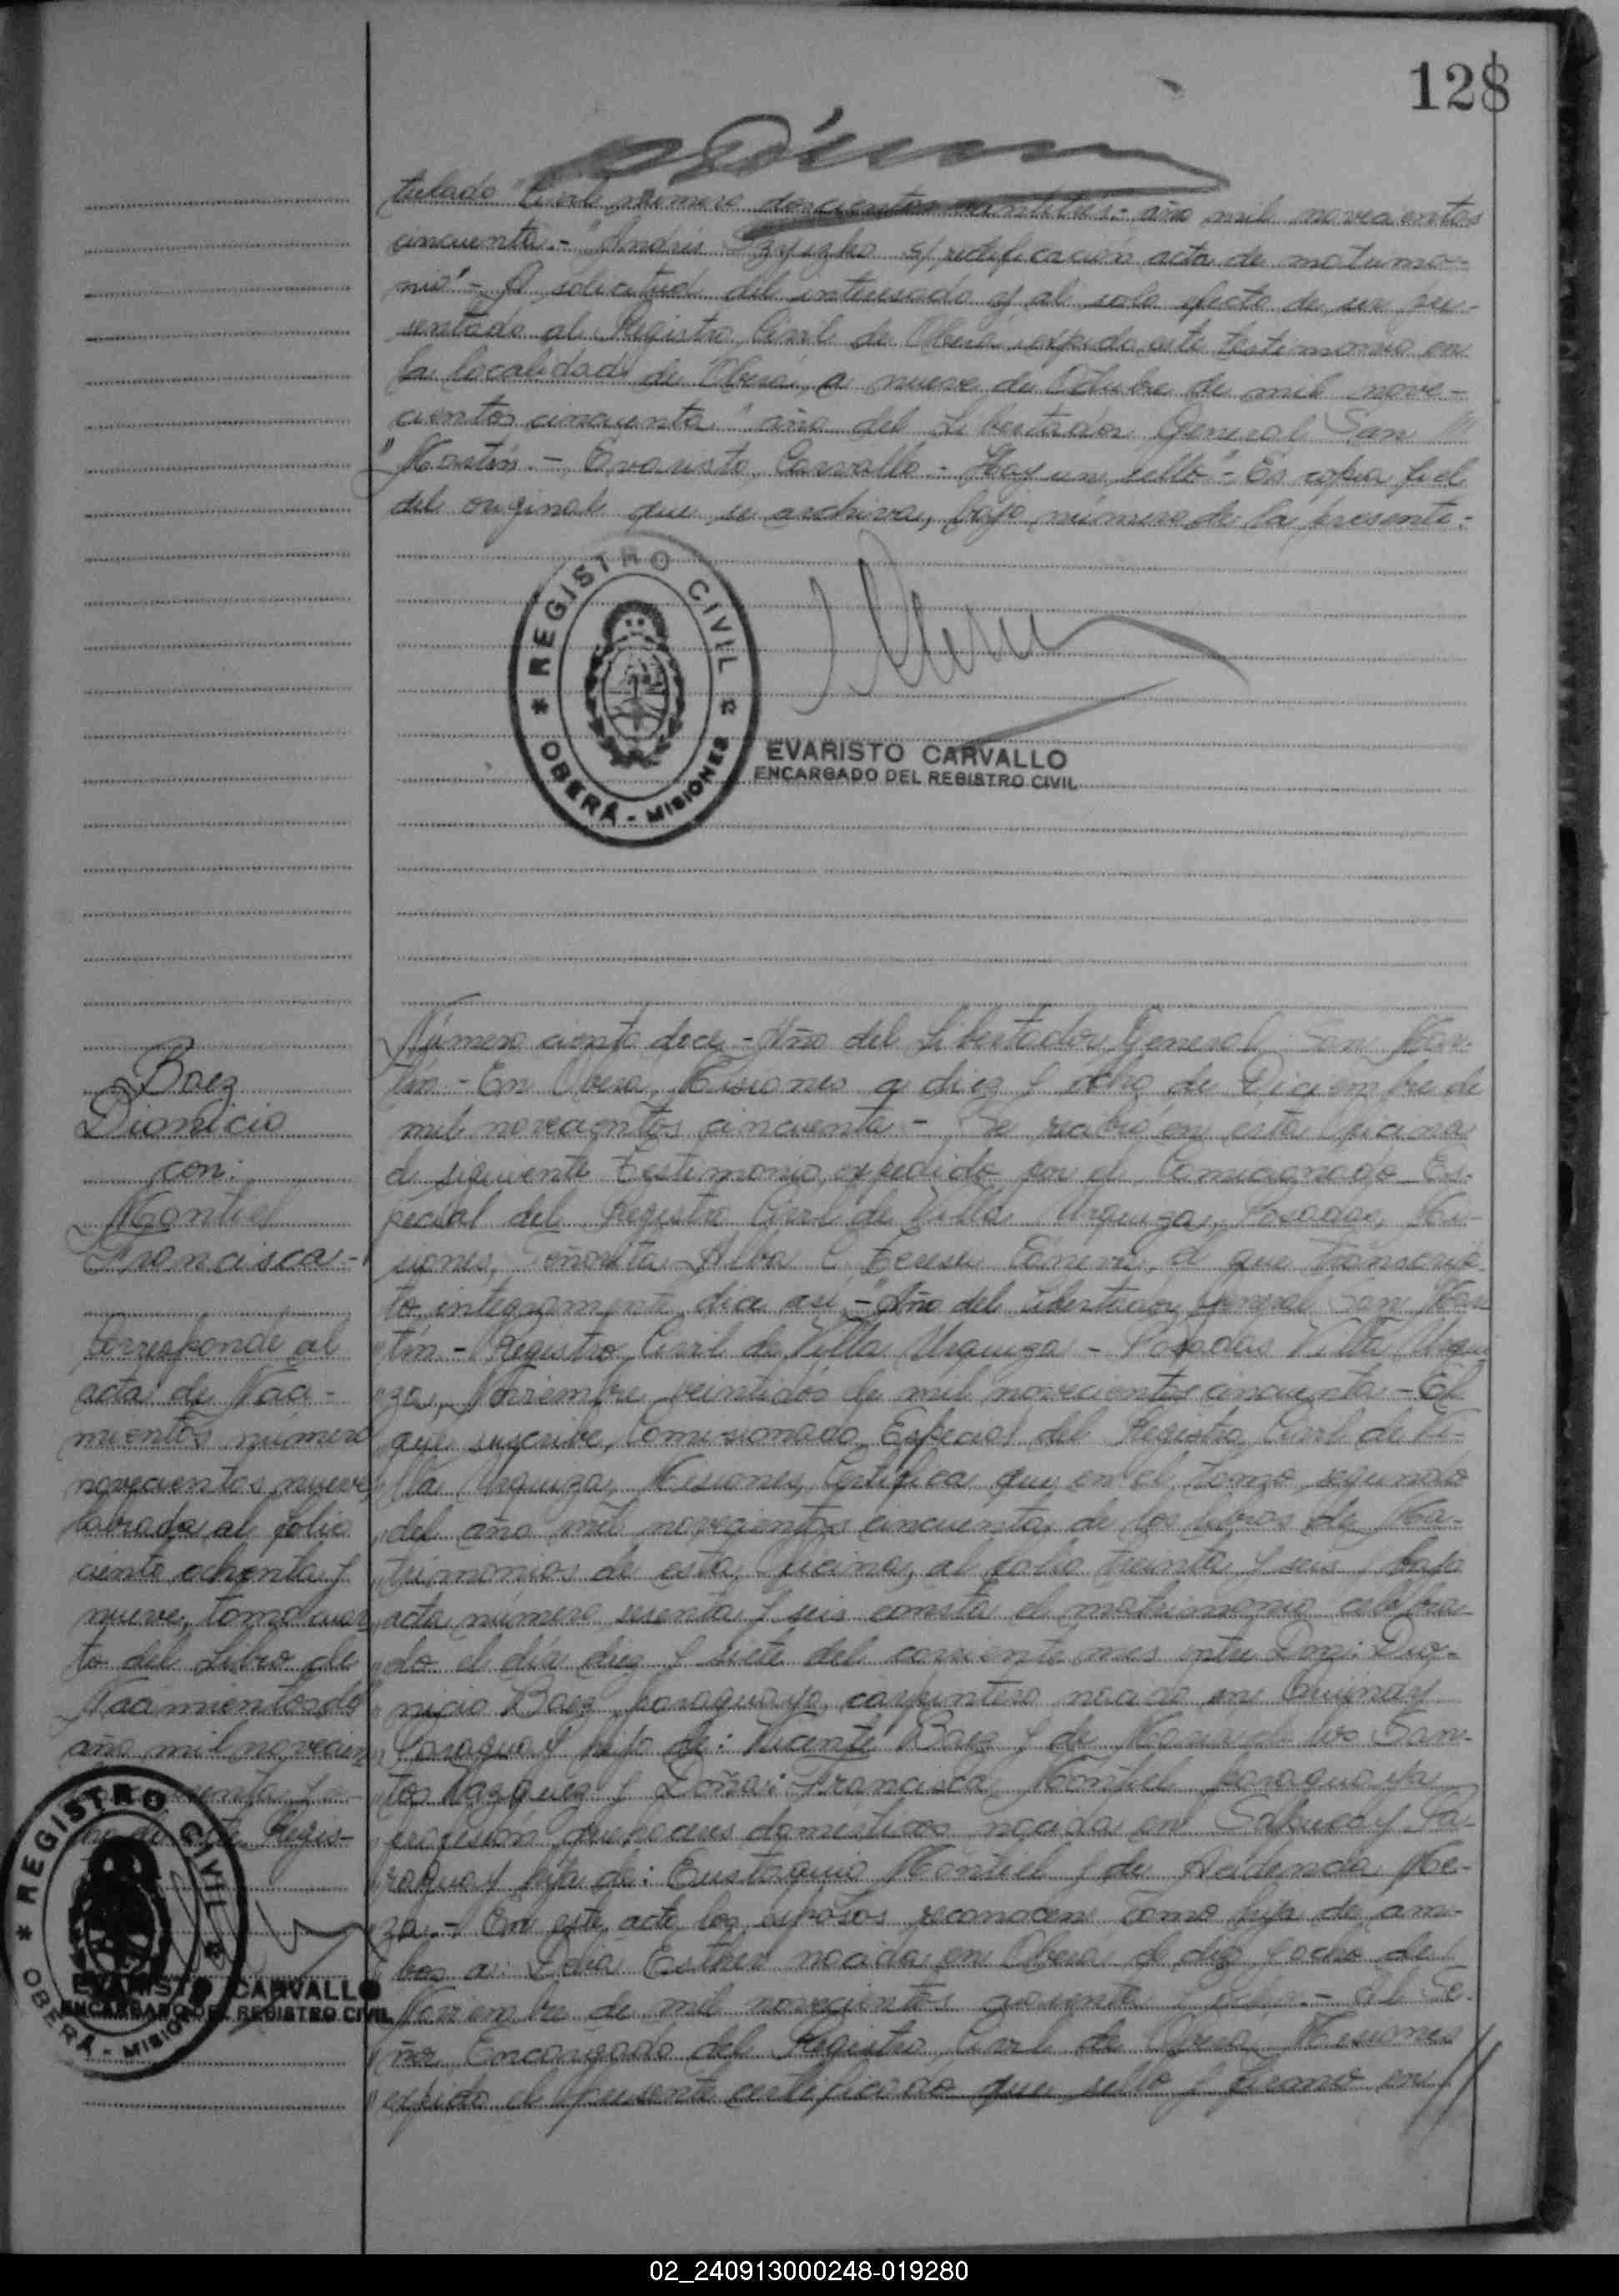 128
tulado "Civil número doscientos veintitres - año mil novecientos
cincuenta.- "Andrés s/ rectificación acta de matrimo-
nio" - A solicitud del interesado y al solo efecto de ser pre-
sentado al Registro Civil de Oberá, expido este testimonio en
la localidad de Oberá, a nueve de Octubre de mil nove-
cientos cincuenta "año del Libertador General San
"Martín. - Evaristo Carvallo - Hay un sello" - Es copia fiel
del original que se archiva, bajo número de la presente:
REGISTRO CIVIL
OBERÁ - MISIONES
EVARISTO CARVALLO
ENCARGADO DEL REGISTRO CIVIL
Baez
Dionicio
con:
Montiel
Francisca -
Corresponde al
acta de Naci-
mientos número
novecientos nueve,
labrada al folio
ciento ochenta y
nueve, tomo cuar
to del Libro de
Nacimientos del
año mil novecien
de este Regis-
REGISTRO CIVIL
OBERÁ - MISIONES
EVARISTO CARVALLO
ENCARGADO DEL REGISTRO CIVIL
Número ciento doce - Año del Libertador General San Mar-
tín - En Oberá, Misiones a diez y ocho de Diciembre de
mil novecientos cincuenta - Se recibió en esta Oficina
el siguiente Testimonio, expedido por el Comicionado Es-
pecial del Registro Civil de Villa Urquiza, Posadas, Mi-
siones, Señorita Alba C. el que transcrip
to integramente dice así - "Año del Libertador General San Mar
"tín - Registro Civil de Villa Urquiza - Posadas Villa Urqui
"za, Noviembre veintidós de mil novecientos cincuenta - El
"que suscribe, Comisionado Especial del Registro Civil de Vi-
"lla Urquiza, Misiones, Certifica que en el tomo segundo
"del año mil novecientos cincuenta de los libros de Ma-
"trimonios de esta Oficina, al folio treinta y seis y bajo
"acta número sesenta y seis consta el matrimonio celebra-
"do el día diez y siete del corriente mes entre Don: Dio-
"nicio Baez, paraguayo, carpintero nacido en
"Paraguay hijo de: Vicente Baez y de María de los San-
"tos Vazquez y Doña: Francisca Montiel paraguaya
"profesión quehaceres domésticos nacida en Sapucay Pa-
"raguay hija de: Eustaquio Montiel y de Me-
"za. - En este acto los esposos reconocen como hija de am-
"bos a: Delia Esther nacida en Oberá el diez y ocho de
"Noviembre de mil novecientos cuarenta y ocho. - Al Se-
"ñor Encargado del Registro Civil de Oberá, Misiones
"expido el presente certificado que sello y firmo en //
02_240913000248-019280